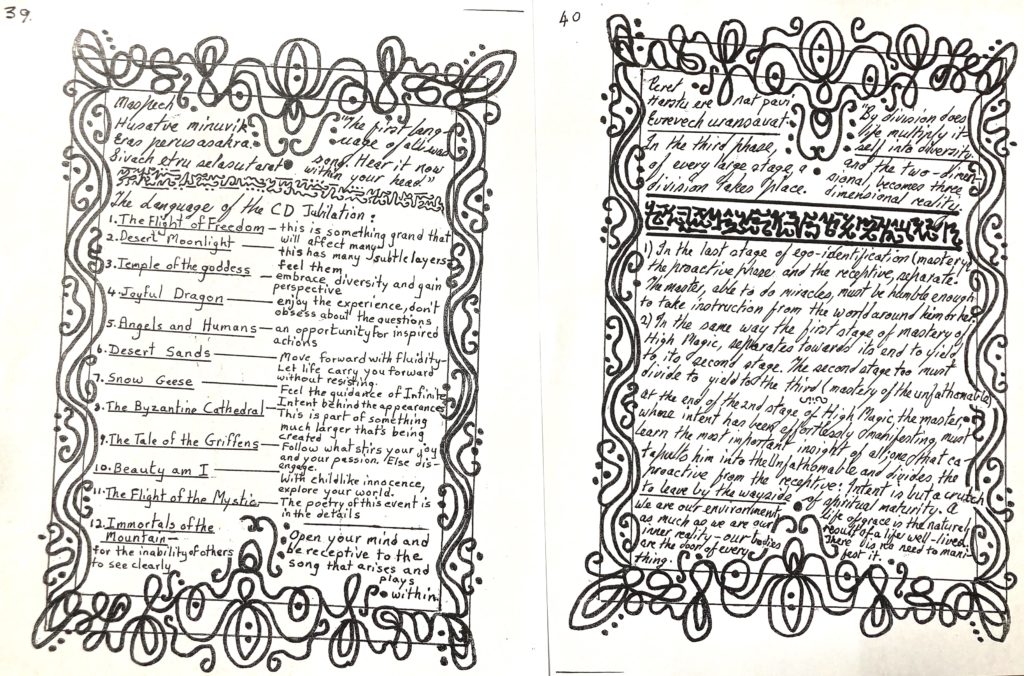 39.
Maspech
Husatve minuvik
Eras perusasakra.
Sivach etru selasutarot
"The first lang-
uage of all was
song. Hear it now
within your head"
The Language of the CD Jubilation:
1. The Flight of Freedom — this is something grand that
will affect many
2. Desert Moonlight — this has many subtle layers
feel them
3. Temple of the goddess — embrace diversity and gain
perspective
4. Joyful Dragon — enjoy the experience, don't
obsess about the questions
5. Angels and Humans — an opportunity for inspired
actions
6. Desert Sands — Move forward with fluidity –
Let life carry you forward
without resisting.
7. Snow Geese — Feel the guidance of Infinite
Intent behind the appearances
8. The Byzantine Cathedral — This is part of something
much larger that's being
created
9. The Tale of the Griffens — Follow what stirs your joy
and your passion. Else dis-
engage.
10. Beauty am I — With childlike innocence,
explore your world.
11. The Flight of the Mystic — The poetry of this event is
in the details
12. Immortals of the
Mountain –
for the inability of others
to see clearly
Open your mind and
be receptive to the
song that arises and
plays
within.
40
Peret
Harstu ere nat pavi
Eurevech uransavat.
"By division does
life multiply it-
self into diversity
and the two-dimen-
sional becomes three
dimensional reality.
In the third phase,
of every large stage, a
division takes place.
1) In the last stage of ego-identification (mastery)
the proactive phase and the receptive, separate.
The master, able to do miracles, must be humble enough
to take instruction from the world around him or her.
2) In the same way the first stage of mastery of
High Magic, separates towards its end to yield
to its second stage. The second stage too must
divide to yield to the third (mastery of the unfathomable)
at the end of the 2nd stage of High Magic, the master,
whose intent has been effortlessly manifesting, must
learn the most important insight of all; one that ca-
tapults him into the Unfathomable and divides the
proactive from the receptive: Intent is but a crutch
to leave by the wayside of spiritual maturity. A
life of grace is the natural
result of a life well-lived.
There is no need to mani-
fest it.
We are our environment
as much as we are our
inner reality – our bodies
are the door of every
thing.